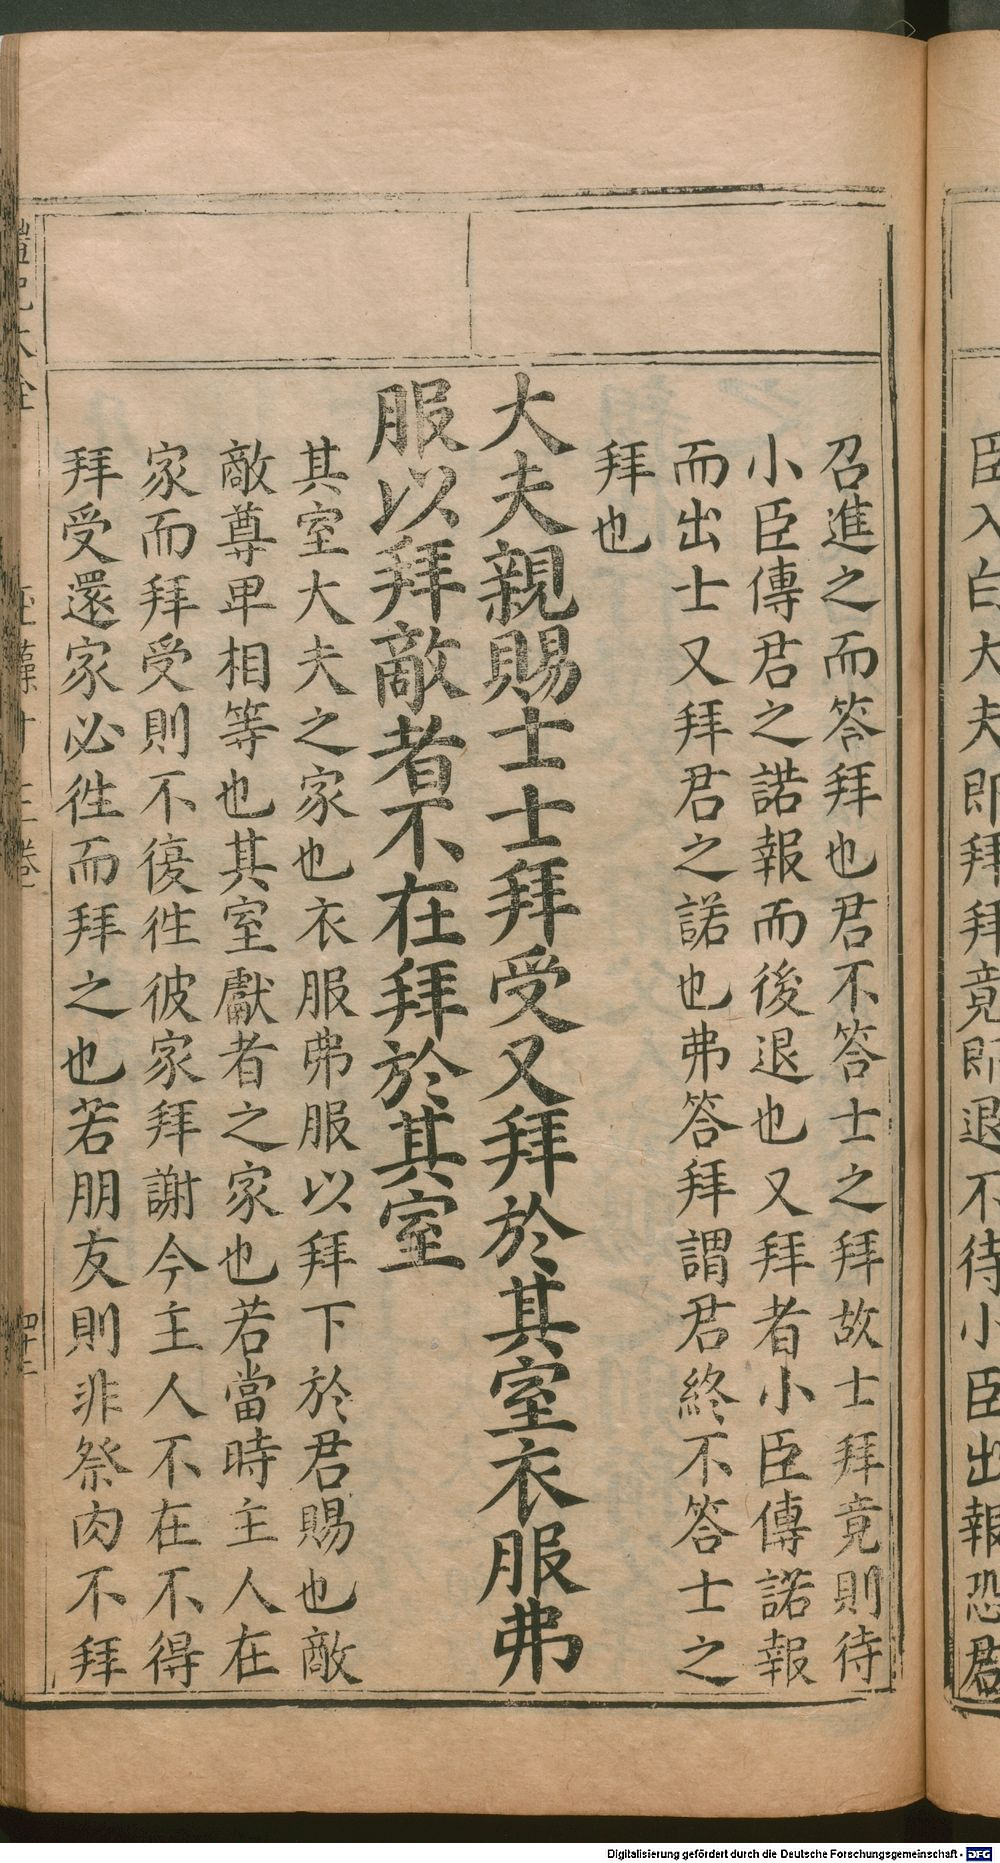 臣入白大夫即拜拜竟即退不待小臣出報恐君
召進之而答拜也君不答士之拜故士拜竟則待
小臣傳君之諾報而後退也又拜者小臣傳諾報
而出士又拜君之諾也弗答拜謂君終不答士之
拜也
大夫親賜士士拜受又拜於其室衣服弗
服以拜敵者不在拜於其室
其室大夫之家也衣服弗服以拜下於君賜也敵
敵尊卑相等也其室獻者之家也若當時主人在
家而拜受則不復徃彼家拜謝今主人不在不得
拜受還家必徃而拜之也若朋友則非祭肉不拜
禮記大全
玉藻十三卷
四十二
Digitalisierung gefördert durch die Deutsche Forschungsgemeinschaft - DFG